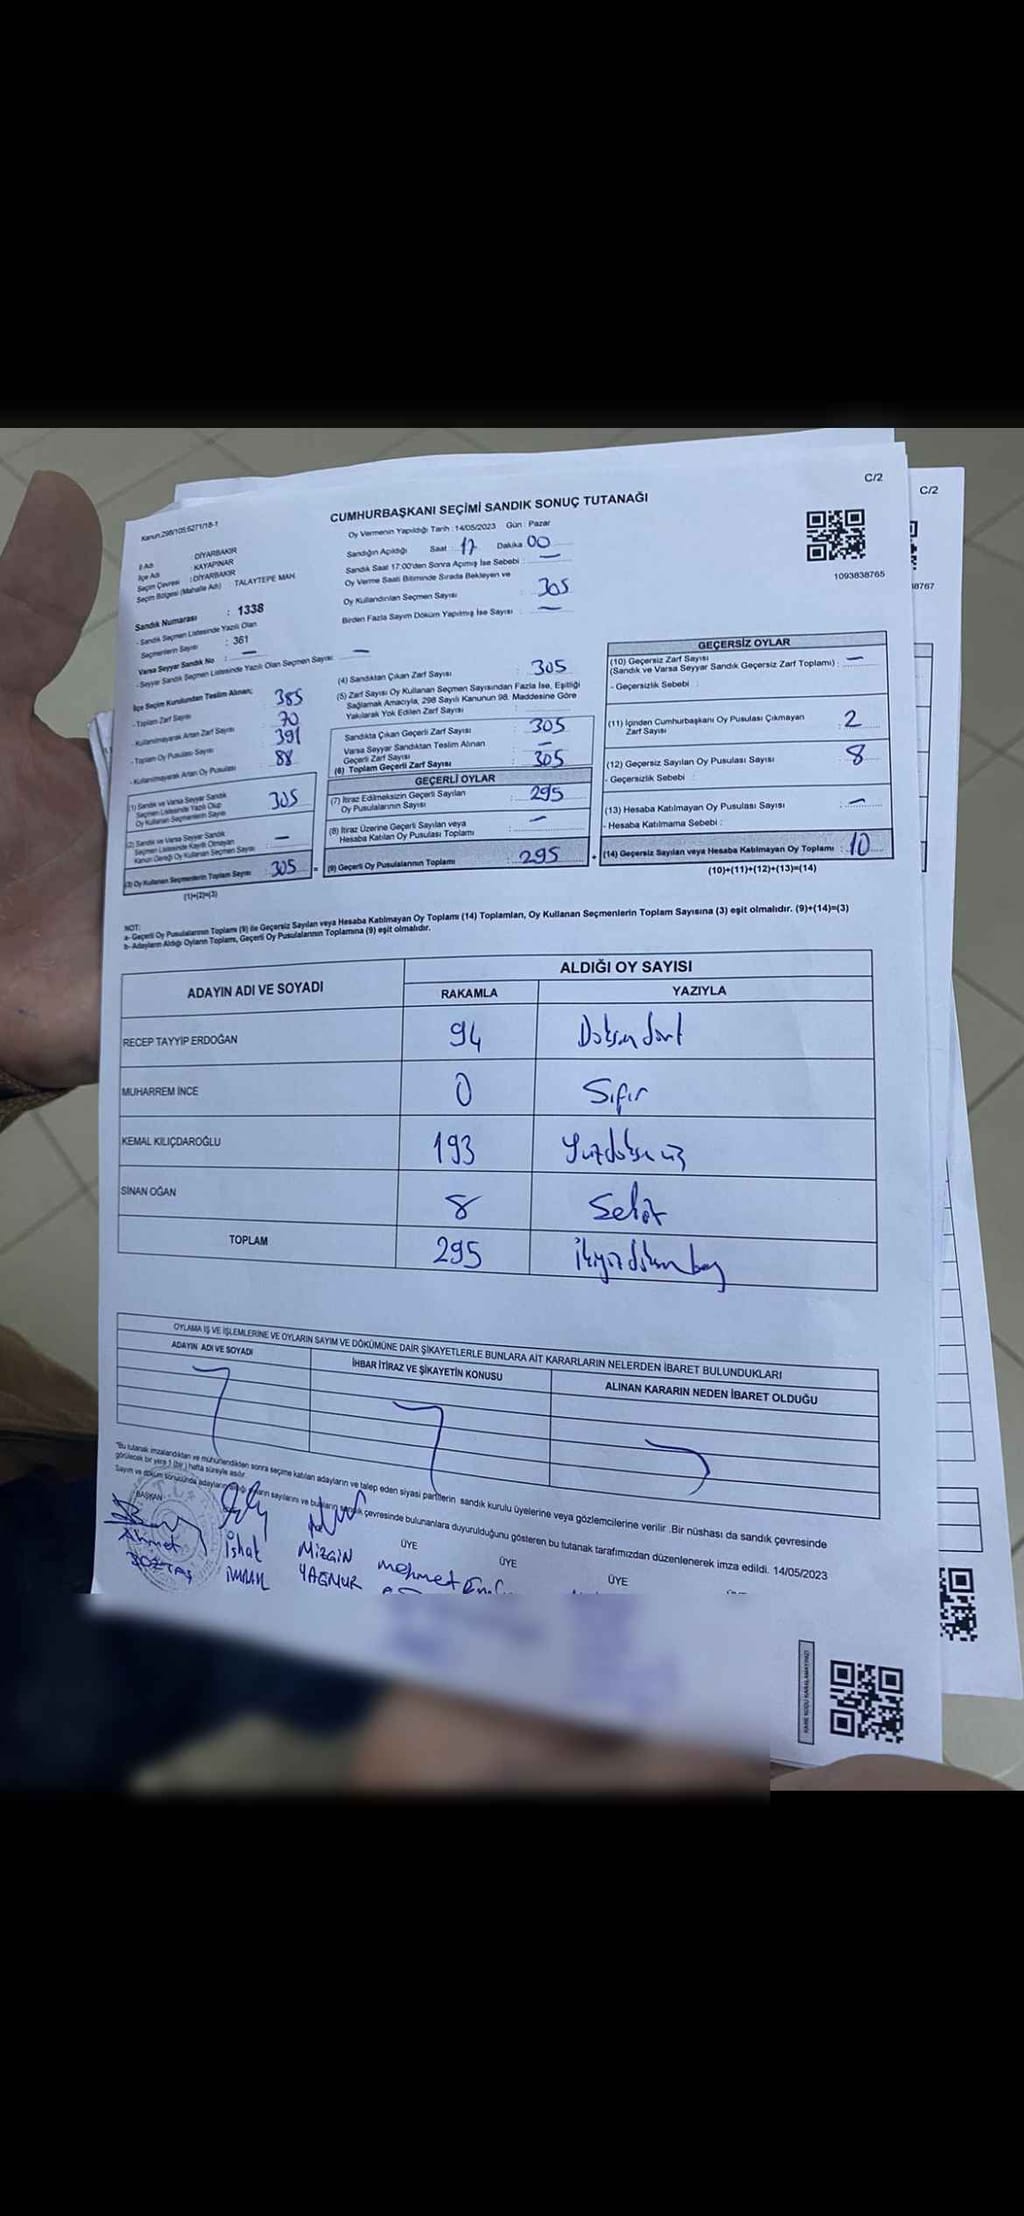 C/2
C/2
CUMHURBAŞKANI SEÇİMİ SANDIK SONUÇ TUTANAĞI
Kanun:298/105;6271/18-1
Oy Vermenin Yapıldığı Tarih : 14/05/2023 Gün : Pazar
Sandığın Açıldığı Saat : 17 Dakika 00
Sandık Saat 17:00'den Sonra Açımış İse Sebebi : —
Oy Verme Saati Bitiminde Sırada Bekleyen ve
Oy Kullandırılan Seçmen Sayısı : 305
Birden Fazla Sayım Döküm Yapılmış İse Sayısı : —
1093838765
38767
İl Adı : DİYARBAKIR
İlçe Adı : KAYAPINAR
Seçim Çevresi : DİYARBAKIR
Seçim Bölgesi (Mahalle Adı) : TALAYTEPE MAH.
Sandık Numarası : 1338
- Sandık Seçmen Listesinde Yazılı Olan
Seçmenlerin Sayısı : 361
Varsa Seyyar Sandık No : —
- Seyyar Sandık Seçmen Listesinde Yazılı Olan Seçmen Sayısı : —
İlçe Seçim Kurulundan Teslim Alınan;
- Toplam Zarf Sayısı 385
- Kullanılmayarak Artan Zarf Sayısı 70
- Toplam Oy Pusulası Sayısı 391
- Kullanılmayarak Artan Oy Pusulası 88
(1) Sandık ve Varsa Seyyar Sandık
Seçmen Listesinde Yazılı Olup
Oy Kullanan Seçmenlerin Sayısı 305
(2) Sandık ve Varsa Seyyar Sandık
Seçmen Listesinde Kayıtlı Olmayan
Kanun Gereği Oy Kullanan Seçmen Sayısı —
(3) Oy Kullanan Seçmenlerin Toplam Sayısı 305
(1)+(2)=(3)
(4) Sandıktan Çıkan Zarf Sayısı : 305
(5) Zarf Sayısı Oy Kullanan Seçmen Sayısından Fazla İse, Eşitliği
Sağlamak Amacıyla, 298 Sayılı Kanunun 98. Maddesine Göre
Yakılarak Yok Edilen Zarf Sayısı
Sandıkta Çıkan Geçerli Zarf Sayısı : 305
Varsa Seyyar Sandıktan Teslim Alınan
Geçerli Zarf Sayısı : —
(6) Toplam Geçerli Zarf Sayısı : 305
GEÇERLİ OYLAR
(7) İtiraz Edilmeksizin Geçerli Sayılan
Oy Pusulalarının Sayısı : 295
(8) İtiraz Üzerine Geçerli Sayılan veya
Hesaba Katılan Oy Pusulası Toplamı : —
= (9) Geçerli Oy Pusulalarının Toplamı 295
GEÇERSİZ OYLAR
(10) Geçersiz Zarf Sayısı
(Sandık ve Varsa Seyyar Sandık Geçersiz Zarf Toplamı) : —
- Geçersizlik Sebebi :
(11) İçinden Cumhurbaşkanı Oy Pusulası Çıkmayan
Zarf Sayısı : 2
(12) Geçersiz Sayılan Oy Pusulası Sayısı : 8
- Geçersizlik Sebebi :
(13) Hesaba Katılmayan Oy Pusulası Sayısı : —
- Hesaba Katılmama Sebebi :
+ (14) Geçersiz Sayılan veya Hesaba Katılmayan Oy Toplamı : 10
(10)+(11)+(12)+(13)=(14)
NOT:
a- Geçerli Oy Pusulalarının Toplamı (9) ile Geçersiz Sayılan veya Hesaba Katılmayan Oy Toplamı (14) Toplamları, Oy Kullanan Seçmenlerin Toplam Sayısına (3) eşit olmalıdır. (9)+(14)=(3)
b- Adayların Aldığı Oyların Toplamı, Geçerli Oy Pusulalarının Toplamına (9) eşit olmalıdır.
ADAYIN ADI VE SOYADI
ALDIĞI OY SAYISI
RAKAMLA YAZIYLA
RECEP TAYYİP ERDOĞAN 94 Doksan dört
MUHARREM İNCE 0 Sıfır
KEMAL KILIÇDAROĞLU 193 Yüzdoksan üç
SİNAN OĞAN 8 Sekiz
TOPLAM 295 ikiyüzdoksan beş
OYLAMA İŞ VE İŞLEMLERİNE VE OYLARIN SAYIM VE DÖKÜMÜNE DAİR ŞİKAYETLERLE BUNLARA AİT KARARLARIN NELERDEN İBARET BULUNDUKLARI
ADAYIN ADI VE SOYADI İHBAR İTİRAZ VE ŞİKAYETİN KONUSU ALINAN KARARIN NEDEN İBARET OLDUĞU
"Bu tutanak imzalandıktan ve mühürlendikten sonra seçime katılan adayların ve talep eden siyasi partilerin sandık kurulu üyelerine veya gözlemcilerine verilir. Bir nüshası da sandık çevresinde
görülecek bir yere 1 (bir) hafta süreyle asılır.
Sayım ve döküm sonucunda adayların aldığı oyların sayılarını ve bunların sandık çevresinde bulunanlara duyurulduğunu gösteren bu tutanak tarafımızdan düzenlenerek imza edildi. 14/05/2023
BAŞKAN ÜYE ÜYE ÜYE
Ahmet BOZTAŞ
İshat
Mizgin YAGNUR
mehmet
KARE KODU KARALAMAYINIZ!